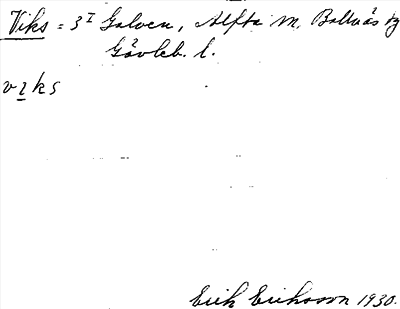 Viks = 3 I Galven, Alfta sn, Ballnäs by
Gävleb. l.
v i k s
Erik Eriksson 1930.